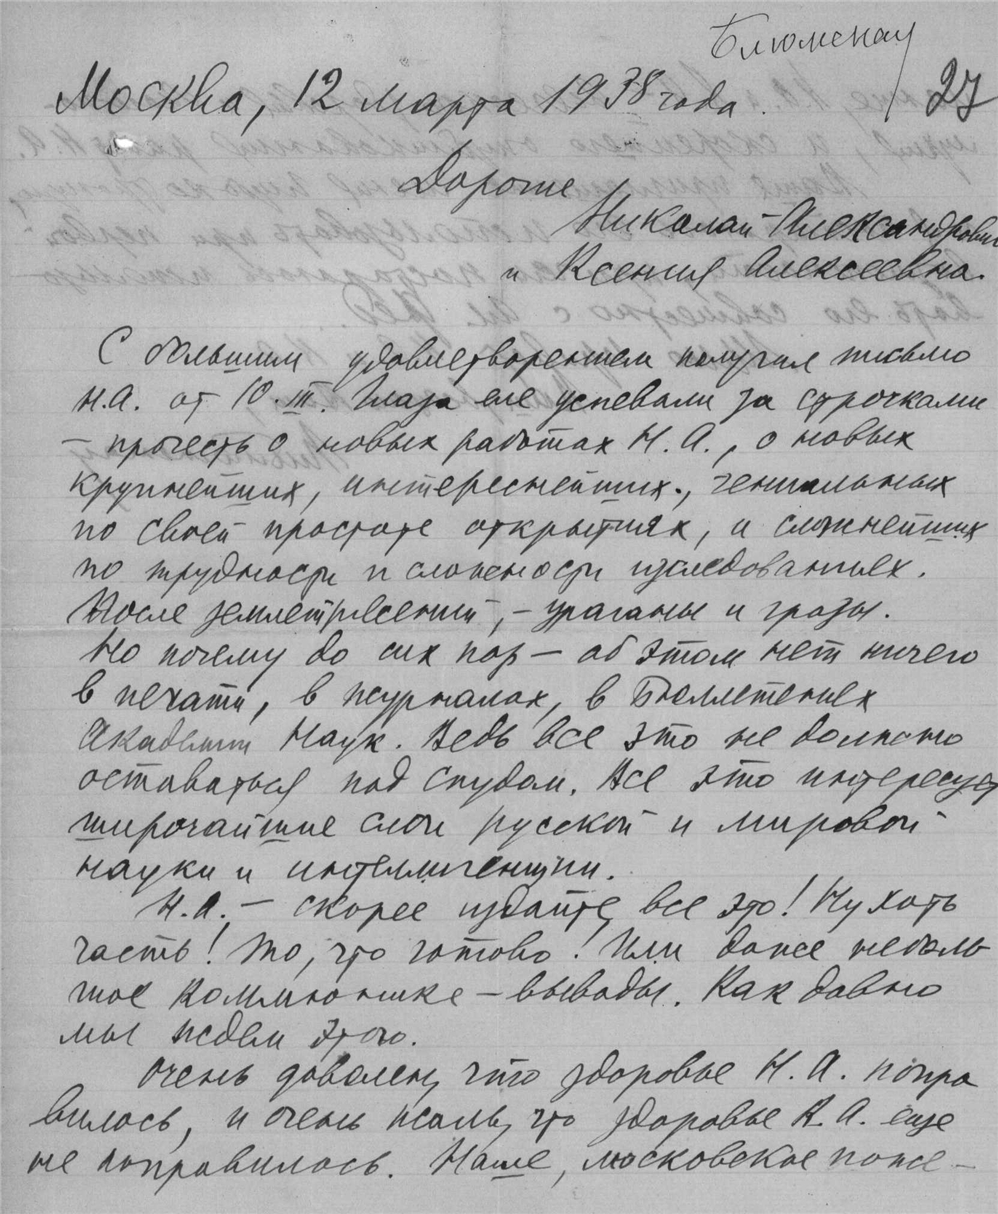 27
Москва, 12 марта 1938 года.
Дорогие
Николай Александрович
и Ксения Алексеевна.
С большим удовлетворением получил письмо
Н.А. от 10.III. Глаза еле успевали за строчками
– прочесть о новых работах Н.А., о новых
крупнейших, интереснейших, гениальных
по своей простоте открытиях, и сложнейших
по трудности и сложности исследованиях.
После землетрясений, – ураганы и грозы.
Но почему до сих пор – об этом нет ничего
в печати, в журналах, в Бюллетенях
Академии Наук. Ведь все это не должно
оставаться под спудом. Все это интересует
широчайшие слои русской и мировой
науки и интеллигенции.
Н.А. – скорее издайте все это! Ну хоть
часть! То, что готово! Или даже неболь
шое коммюнике – выводы. Как давно
мы ждем этого.
Очень доволен, что здоровье Н.А. попра
вилось, и очень жаль, что здоровье К.А. еще
не поправилось. Наше, московское тоже –